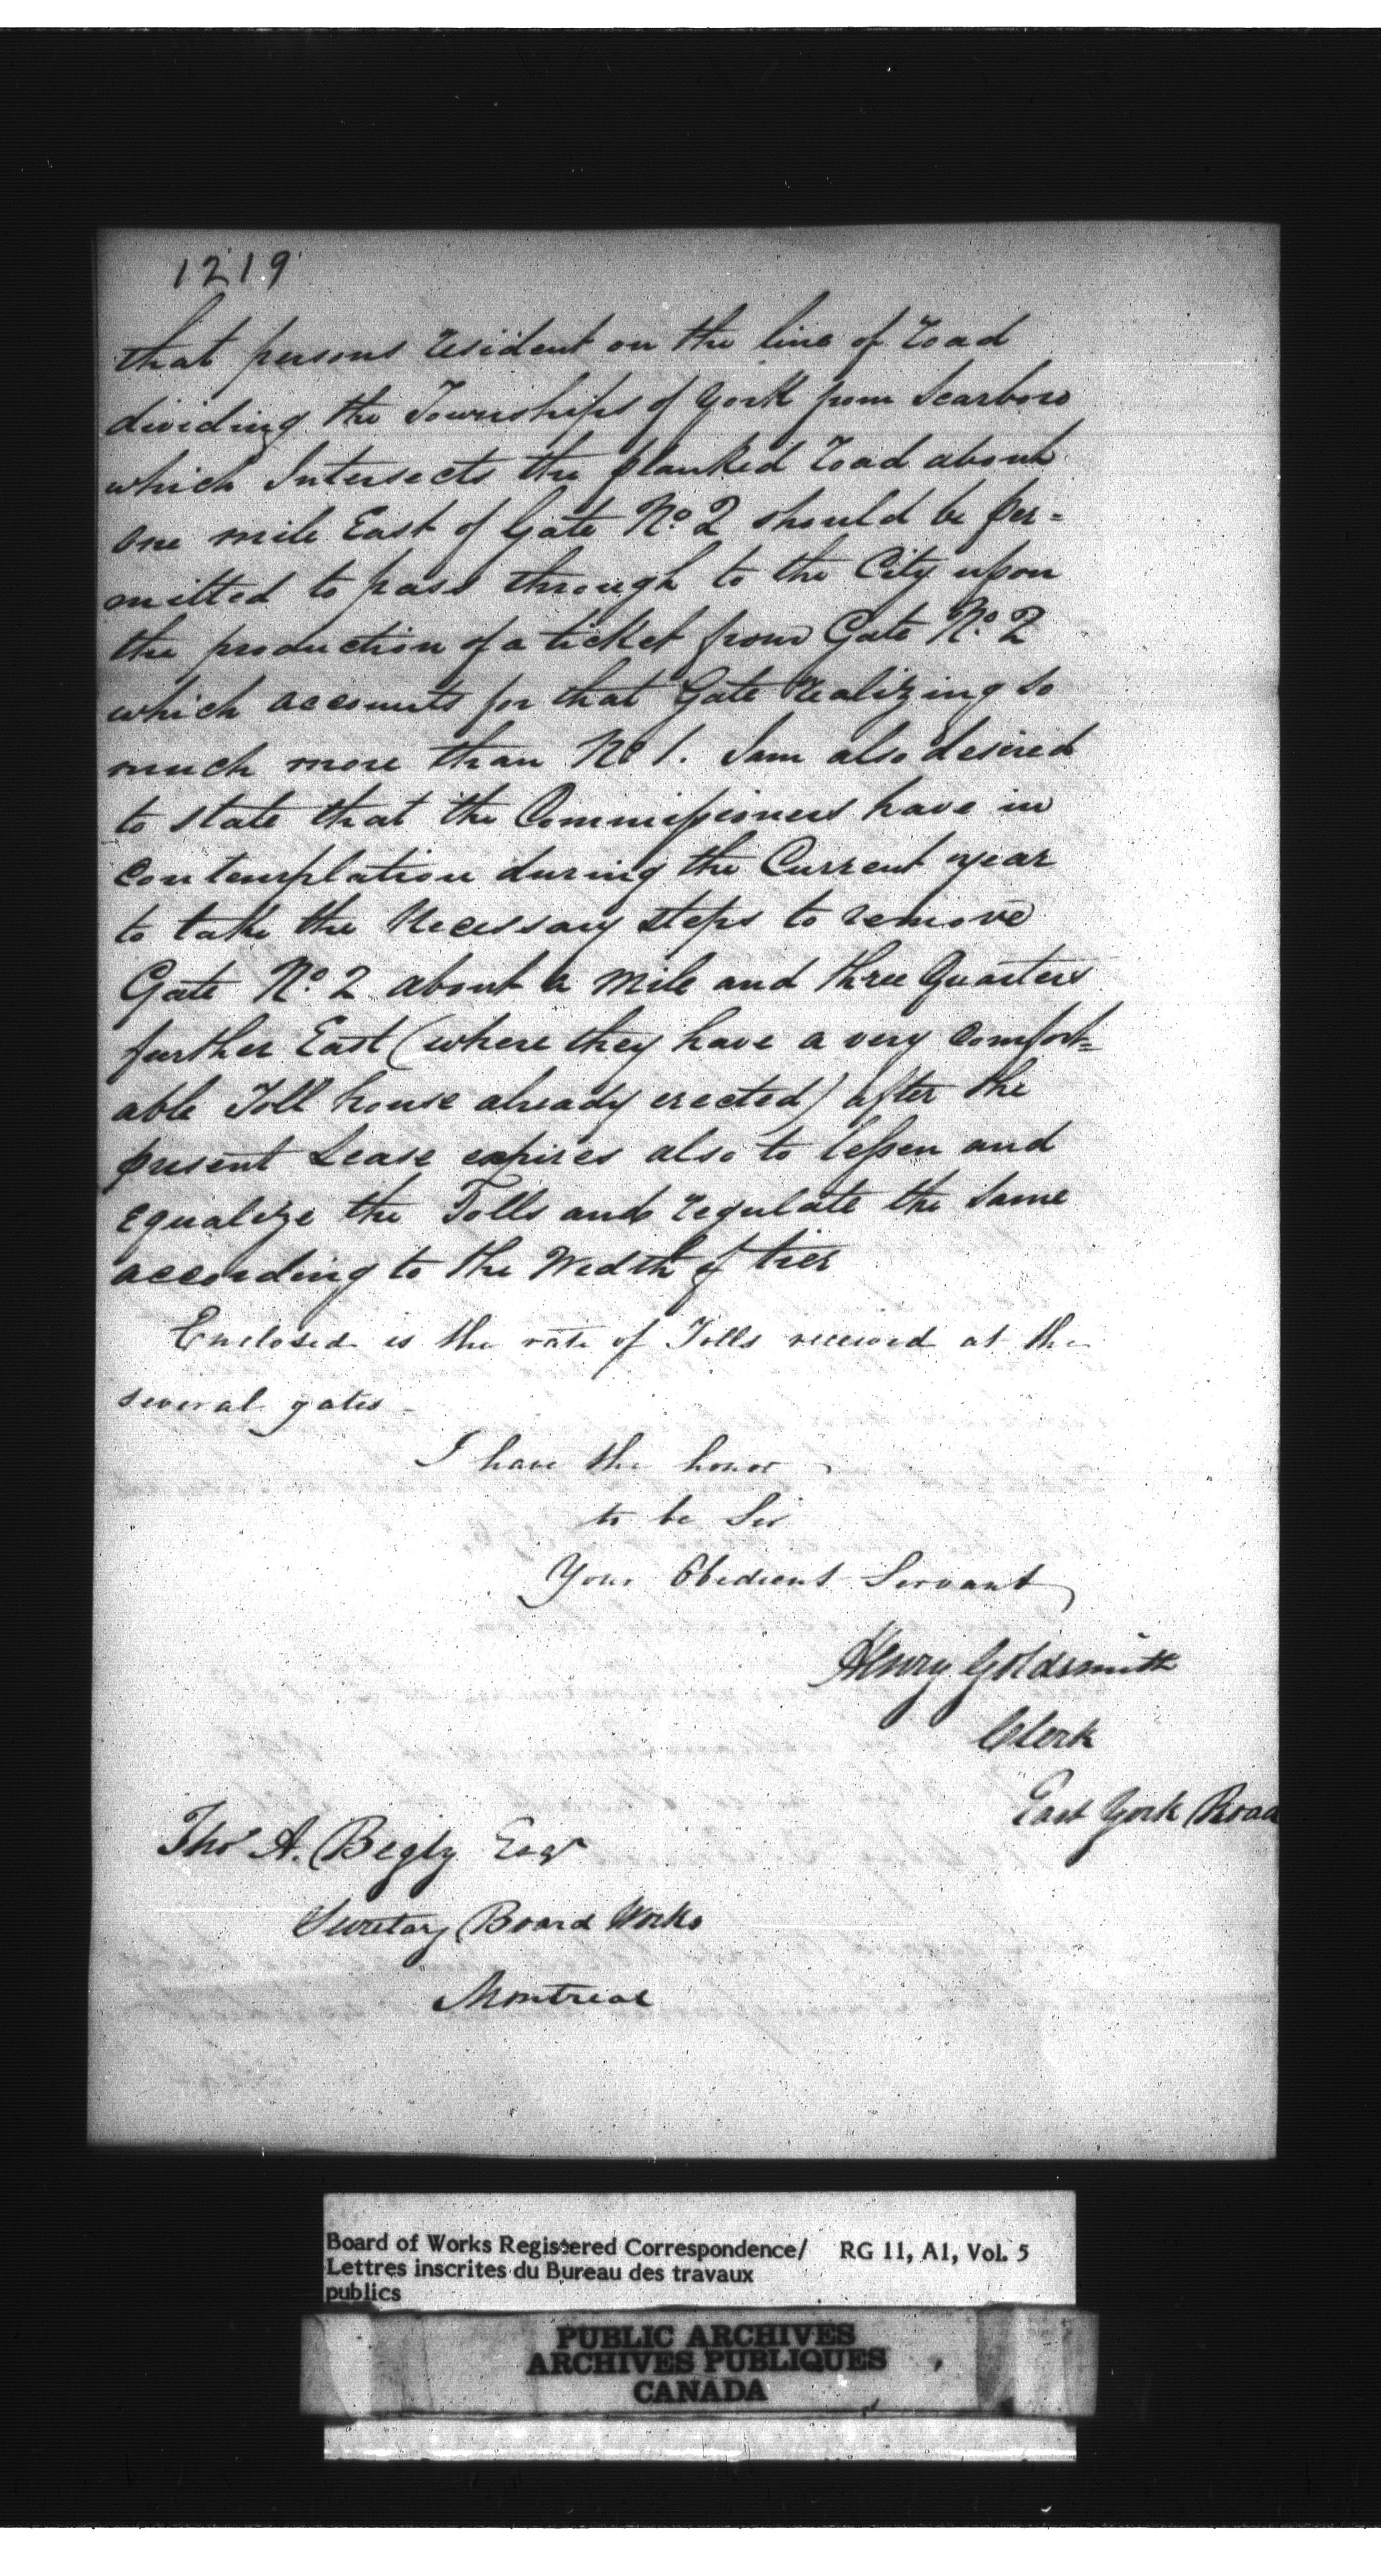 1219
that persons resident on the line of road
dividing the Townships of York from Scarboro
which Intersects the planked road about
one mile East of Gate No. 2 should be per=
mitted to pass through to the City upon
the production of a ticket from Gate No. 2
which accounts for that Gate realizing so
much more than No 1. I am also desired
to state that the Commissioners have in
contemplation during the Current year
to take the Necessary steps to remove
Gate No. 2 about a mile and three Quarters
further East (where they have a very comfort=
able Toll house already erected) after the
present Lease expires also to lessen and
equalize the Tolls and regulate the same
according to the Width of tier
Enclosed is the rate of Tolls received at the
several gates -
I have the honor
to be Sir
Your Obedient Servant
Henry Goldsmith
Clerk
East York Road
Thos A. Begly Esqr
Secretary Board Works
Montreal
Board of Works Registered Correspondence/ RG 11, A1, Vol. 5
Lettres inscrites du Bureau des travaux
publics
PUBLIC ARCHIVES
ARCHIVES PUBLIQUES
CANADA